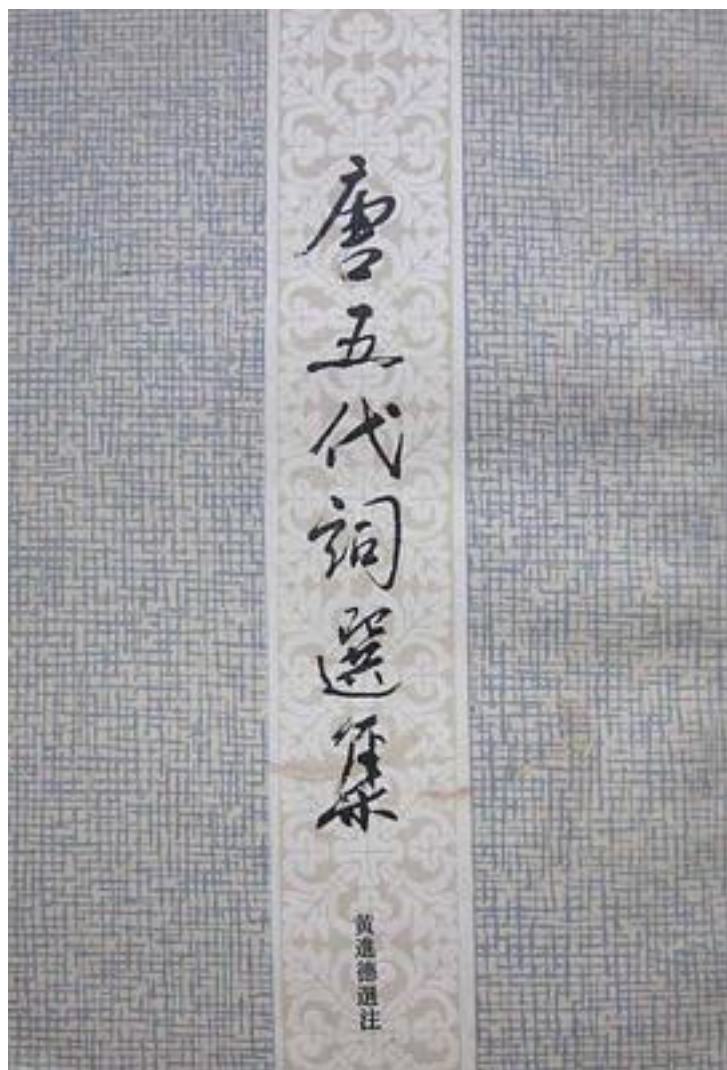 唐五代詞選集
黃進德選注